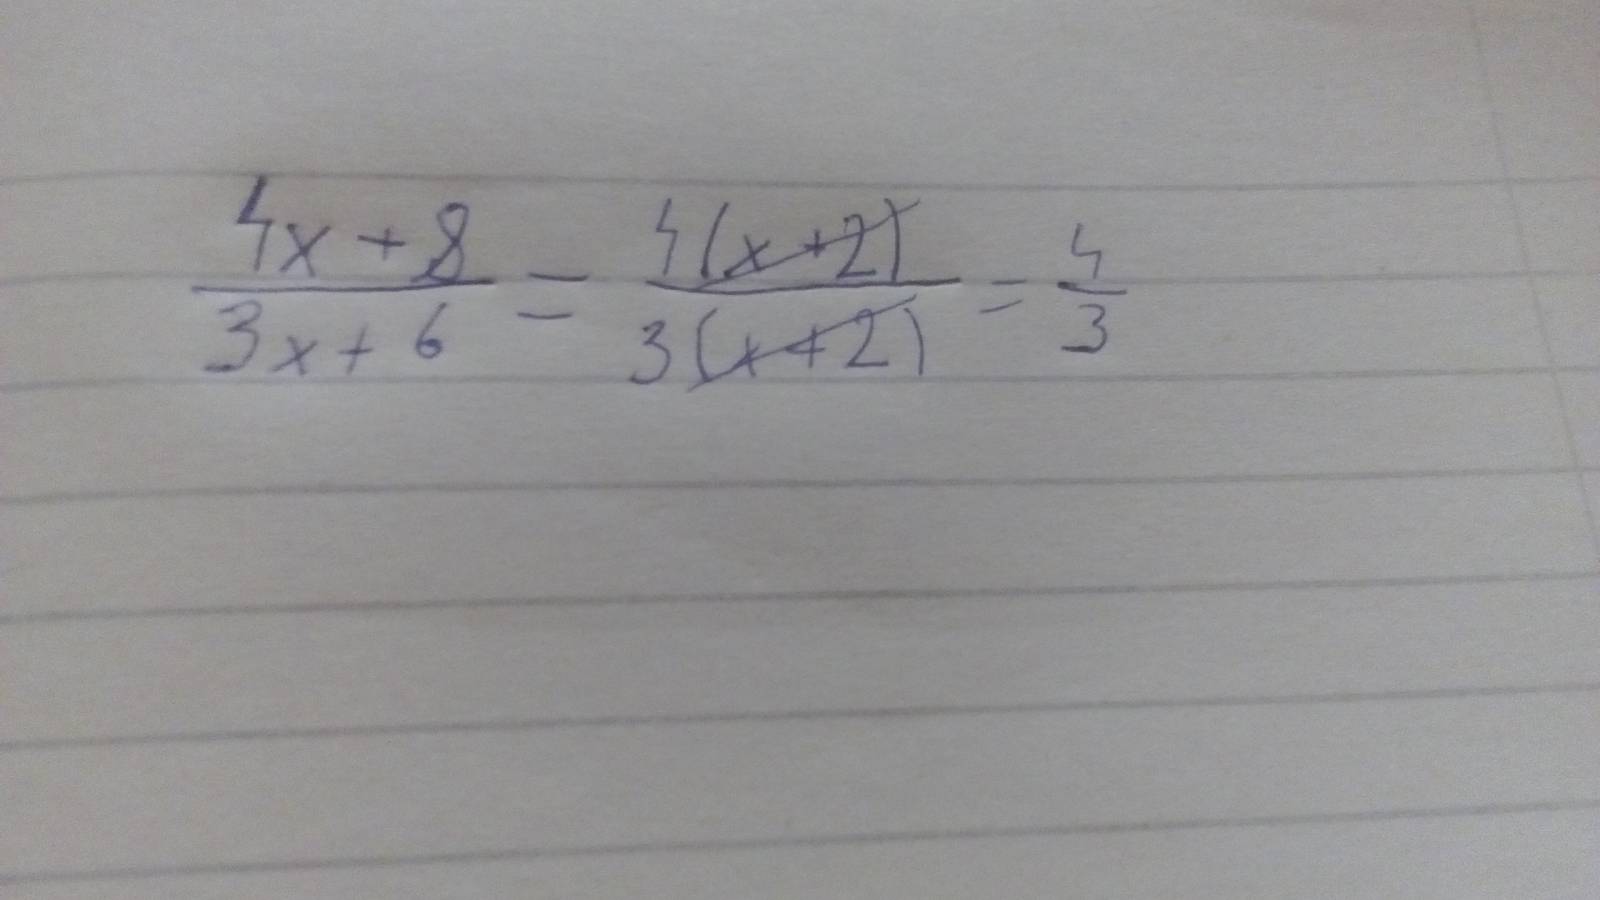 (4x+8)/(3x+6) = (4(x+2))/(3(x+2)) = 4/3